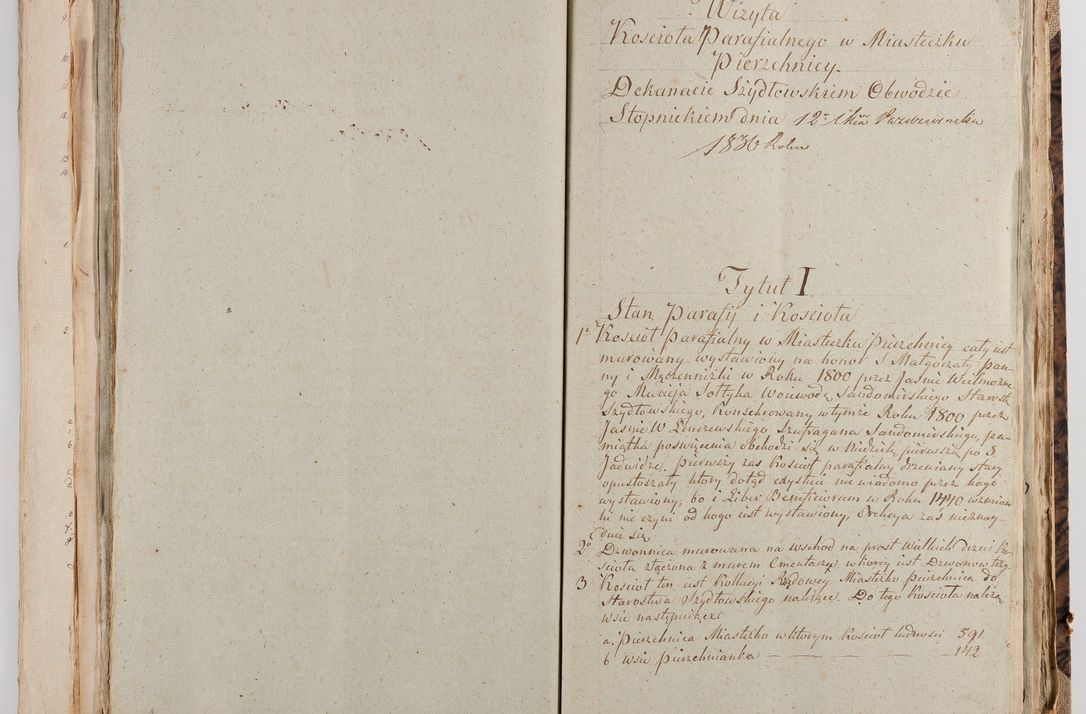 Wizyta
Kościoła Parafialnego w Miasteczku
Pierzchnicy
Dekanacie Szydłowskiem Obwodzie
Stopnickiem dnia 12º Październiku
1830 Roku
Tytuł I
Stan Parafij i Kościoła
1º Kościół Parafialny w Miasteczku Pierzchnicy cały iest
murowany wystawiony na honor S Małgorzaty pan-
ny i Męczenniczki w Roku 1800 przez Jaśnie Wielmożne-
go Macieja Sołtyka Woiewodę Sandomirskiego Starostę
Szydłowskiego, Konsekrowany w tymże Roku 1800 przez
Jaśnie W Lenczewskiego Szufragana Sandomirskiego, pa-
miątka poswięcenia obchodzi się w Niedzielę pierwszą po S.
Jadwidze, pierwszy zas Kosciół parafialny drzewiany stary
opustoszały który dotąd exystuie niewiadomo przez kogo
wystawiony, bo i Liber Beneficiorum w Roku 1440 wzmian-
ki nie czyni od kogo iest wystawiony, Erekcya zaś nieznay-
duie się
2º Dzwonnica murowana na wschod na prost Wielkich drzwi Ko-
ścioła złączona z murem Cmentarza, w ktorey iest Dzwonow trzy
3 Kościół ten iest Kollacyi Rządowey. Miasteczko Pierzchnica do
Starostwa Szydłowskiego należące. Do tego Kościoła należą
wsie następuiące
a. Pierzchnica Miasteczko w ktorym Kościół ludności 591
b wsie Pierzchnianka 142